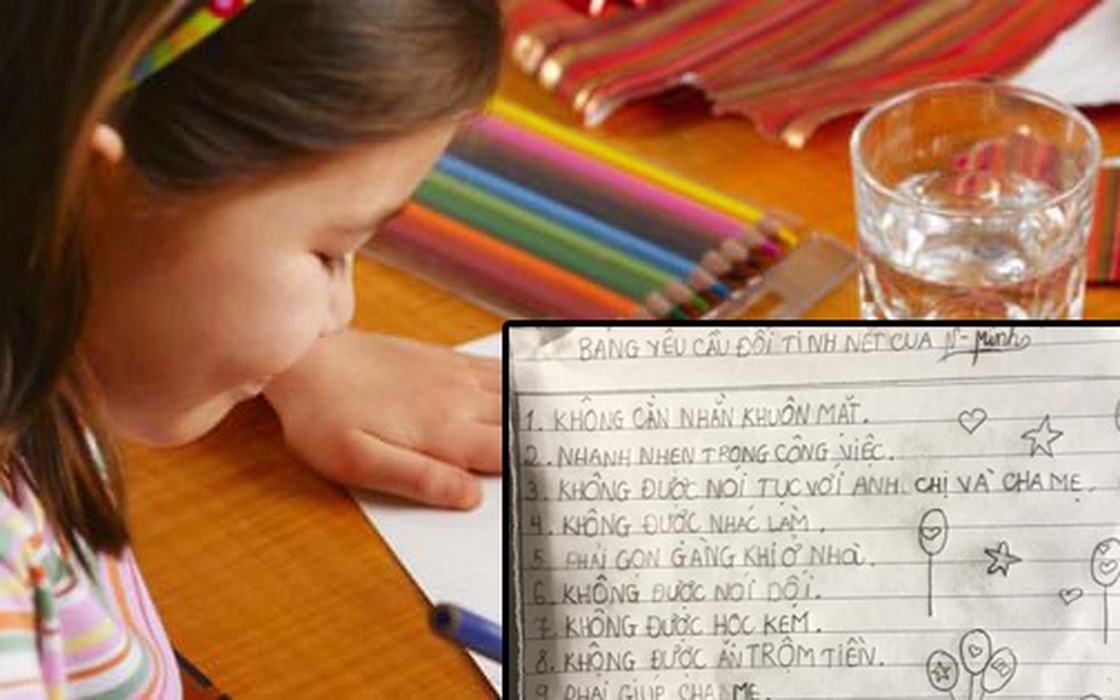 BẢNG YÊU CẦU ĐỔI TÍNH NẾT CỦA N-Minh
1. KHÔNG CẰN NHẰN KHUÔN MẶT.
2. NHANH NHẸN TRONG CÔNG VIỆC.
3. KHÔNG ĐƯỢC NÓI TỤC VỚI ANH CHỊ VÀ CHA MẸ.
4. KHÔNG ĐƯỢC NHÁC LÀM.
5. PHẢI GỌN GÀNG KHI Ở NHÀ.
6. KHÔNG ĐƯỢC NÓI DỐI.
7. KHÔNG ĐƯỢC HỌC KÉM.
8. KHÔNG ĐƯỢC ĂN TRỘM TIỀN.
9 PHẢI GIÚP CHA MẸ.